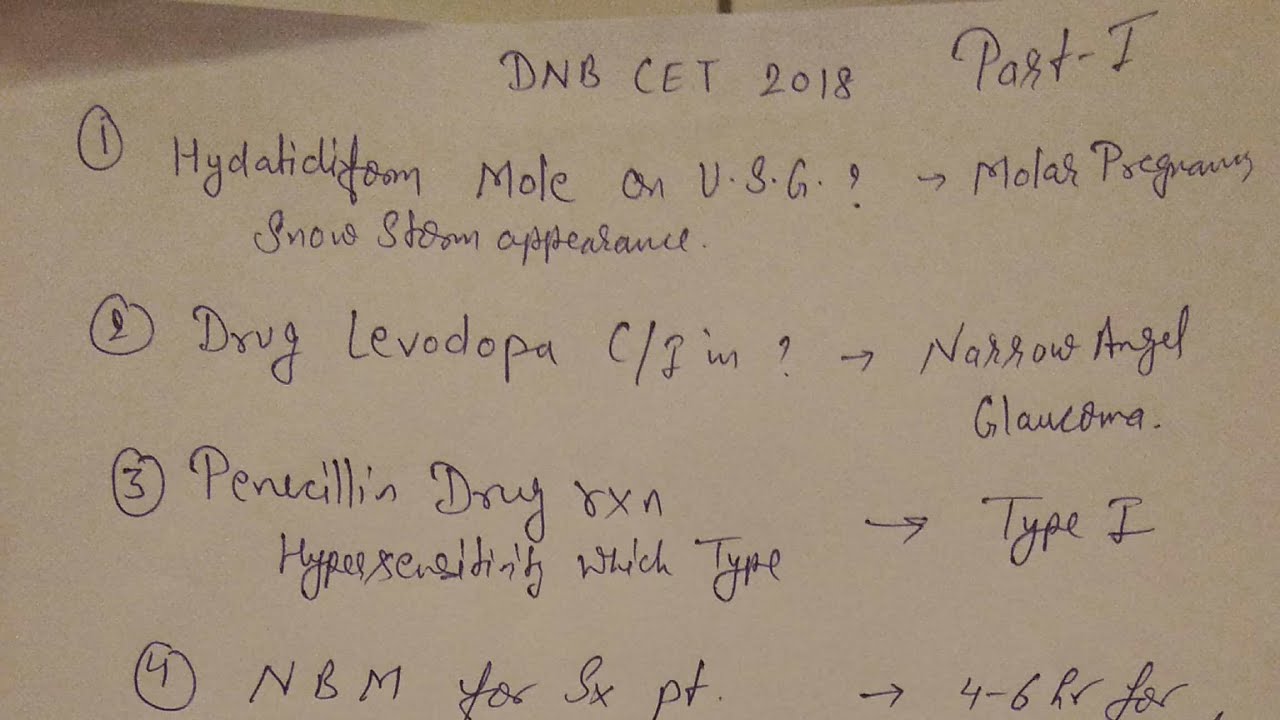 DNB CET 2018 Part-I
① Hydatidiform Mole on U.S.G. ? → Molar Pregnancy
Snow Storm appearance.
② Drug Levodopa C/I in ? → Narrow Angel
Glaucoma.
③ Penecillin Drug rxn
Hypersensitivity which Type → Type I
④ NBM for Sx pt. → 4-6 hr for